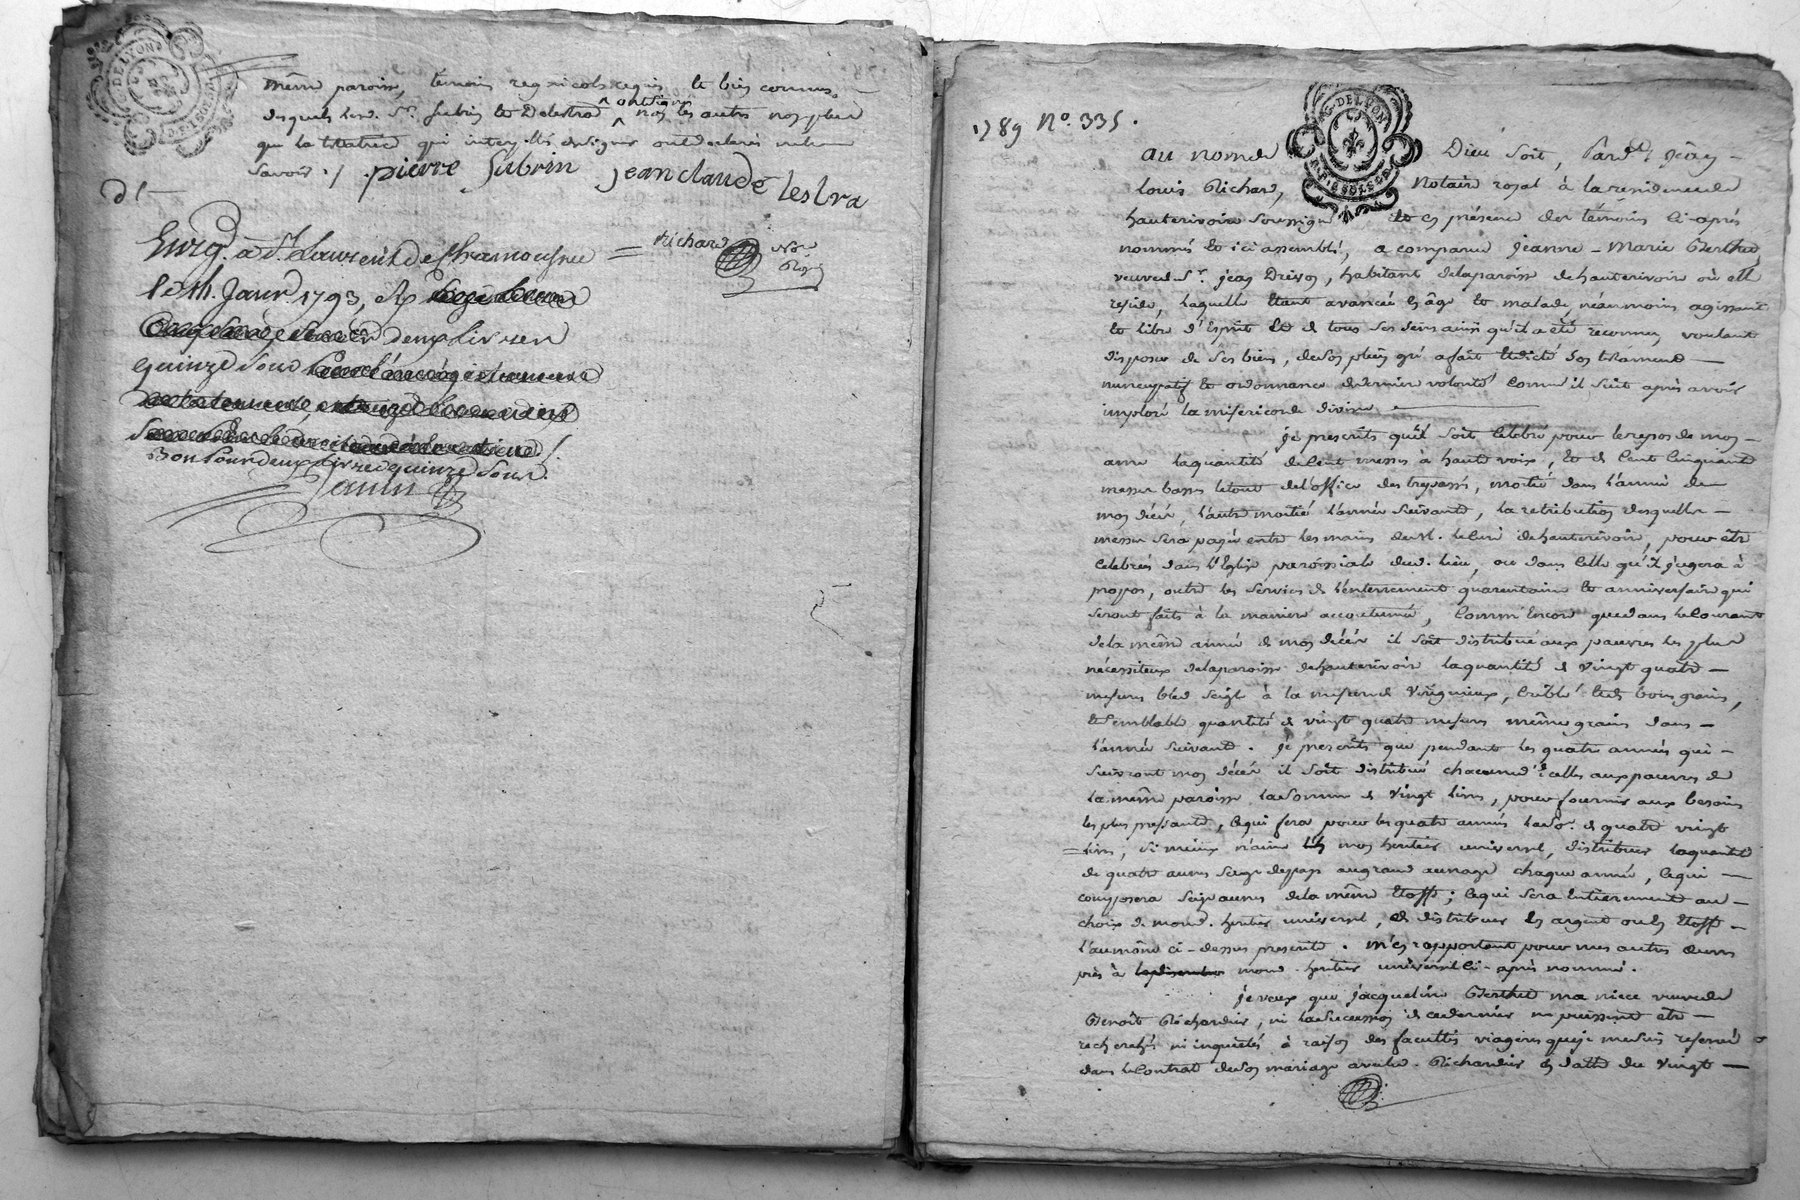 G. DE LYON
même paroisse, témoins regnicols requis et bien connus,
desquels led. Sr. Subrin et Delestra ont signé non les autres non plus
que la testatrice qui interpellés de signer ont declaré ne le
savoir ./. pierre Subrin jean claude lestra
Richard Nore Royal
Enreg. à St Laurent de Chamousset
le 14 Janvr. 1793, R
deux livres
quinze sous
Bon pour deux livres quinze sous.
Janin
1789 No. 335.
G. DE LYON
au nom de Dieu soit, Pardt. jean
Louis Richard, Notaire royal à la residence de
hauterivoire soussigné et en présence des témoins ci-après
nommés et ici assemblés, a comparue jeanne-Marie Berthet
veuve de Sr. jean Drivon, habitant de la paroisse de hauterivoire où elle
reside, laquelle étant avancée en âge et malade, néanmoins agissant
et libre d'Esprit et de tous ses sens ainsi qu'il a été reconnu, voulant
disposer de ses biens, de son plein gré a fait et dicté son testament
nuncupatif et ordonnance de derniere volonté comme il suit après avoir
imploré la misericorde divine.
je prescrits qu'il soit celebré pour le repos de mon
ame la quantité de cent messes à haute voix, et de cent cinquante
messes basses le tout de l'office des trepassés, moitié dans l'année de
mon décès, l'autre moitié l'année suivante, la retribution desquelles
messes sera payée entre les mains de M. le Curé de hauterivoire, pour être
celebrées dans l'Eglise paroissiale dud. lieu, ou dans celle qu'il jugera à
propos, outre les services de l'enterrement quarantaine et anniversaire qui
seront faits à la maniere accoutumée, comm'Encore que dans le courant
de la même année de mon décès il soit distribué aux pauvres les plus
nécessiteux de la paroisse de hauterivoire la quantité de vingt quatre
mesures bled seigle à la mesure de Virignieux, criblé et de bon grain,
et semblable quantité de vingt quatre mesures même grain dans
l'année suivante. je prescrits que pendant les quatre années qui
suivront mon décès il soit distribué chacune d'icelles aux pauvres de
la même paroisse la somme de vingt livres, pour fournir aux besoins
les plus pressants, ce qui fera pour les quatre années la so. de quatre vingt
livres, si mieux n'aime mon heritier universel, distribuer la quantité
de quatre aunes serge de pays au grand aunage chaque année, ce qui
composera seize aunes de la même étoffe; ce qui sera entierement au
choix de mond. heritier universel, de distribuer en argent ou en étoffe
l'aumône ci-dessus prescrite. m'en rapportant pour mes autres œuvres
pies à mond. heritier universel ci-après nommé.
je veux que jacqueline Berthet ma niece veuve de
Benoît Richardier, ni la succession de ce dernier ne puissent être
recherchés ni inquietés à raison des facultés viageres que je me suis reservé
dans le contrat de son mariage avec led. Richardier en datte du vingt